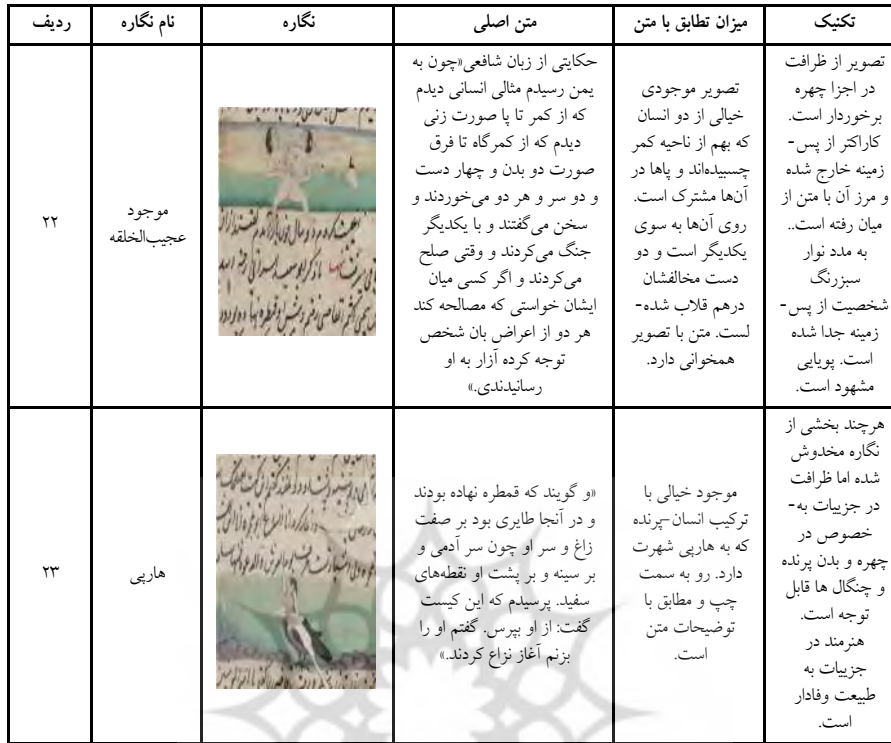 ردیف
نام نگاره
نگاره
متن اصلی
میزان تطابق با متن
تکنیک
۲۲
موجود
عجیب‌الخلقه
حکایتی از زبان شافعی«چون به
یمن رسیدم مثالی انسانی دیدم
که از کمر تا پا صورت زنی
دیدم که از کمرگاه تا فرق
صورت دو بدن و چهار دست
و دو سر و هر دو می‌خوردند و
سخن می‌گفتند و با یکدیگر
جنگ می‌کردند و وقتی صلح
می‌کردند و اگر کسی میان
ایشان خواستی که مصالحه کند
هر دو از اعراض بان شخص
توجه کرده آزار به او
رسانیدندی.»
تصویر موجودی
خیالی از دو انسان
که بهم از ناحیه کمر
چسبیده‌اند و پاها در
آن‌ها مشترک است.
روی آن‌ها به سوی
یکدیگر است و دو
دست مخالفشان
درهم قلاب شده-
لست. متن با تصویر
همخوانی دارد.
تصویر از ظرافت
در اجزا چهره
برخوردار است.
کاراکتر از پس-
زمینه خارج شده
و مرز آن با متن از
میان رفته است..
به مدد نوار
سبزرنگ
شخصیت از پس-
زمینه جدا شده
است. پویایی
مشهود است.
۲۳
هارپی
«و گویند که قمطره نهاده بودند
و در آنجا طایری بود بر صفت
زاغ و سر او چون سر آدمی و
بر سینه و بر پشت او نقطه‌های
سفید. پرسیدم که این کیست
گفت: از او بپرس. گفتم او را
بزنم آغاز نزاع کردند.»
موجود خیالی با
ترکیب انسان-پرنده
که به هارپی شهرت
دارد. رو به سمت
چپ و مطابق با
توضیحات متن
است.
هرچند بخشی از
نگاره مخدوش
شده اما ظرافت
در جزییات به-
خصوص در
چهره و بدن پرنده
و چنگال ها قابل
توجه است.
هنرمند در
جزییات به
طبیعت وفادار
است.